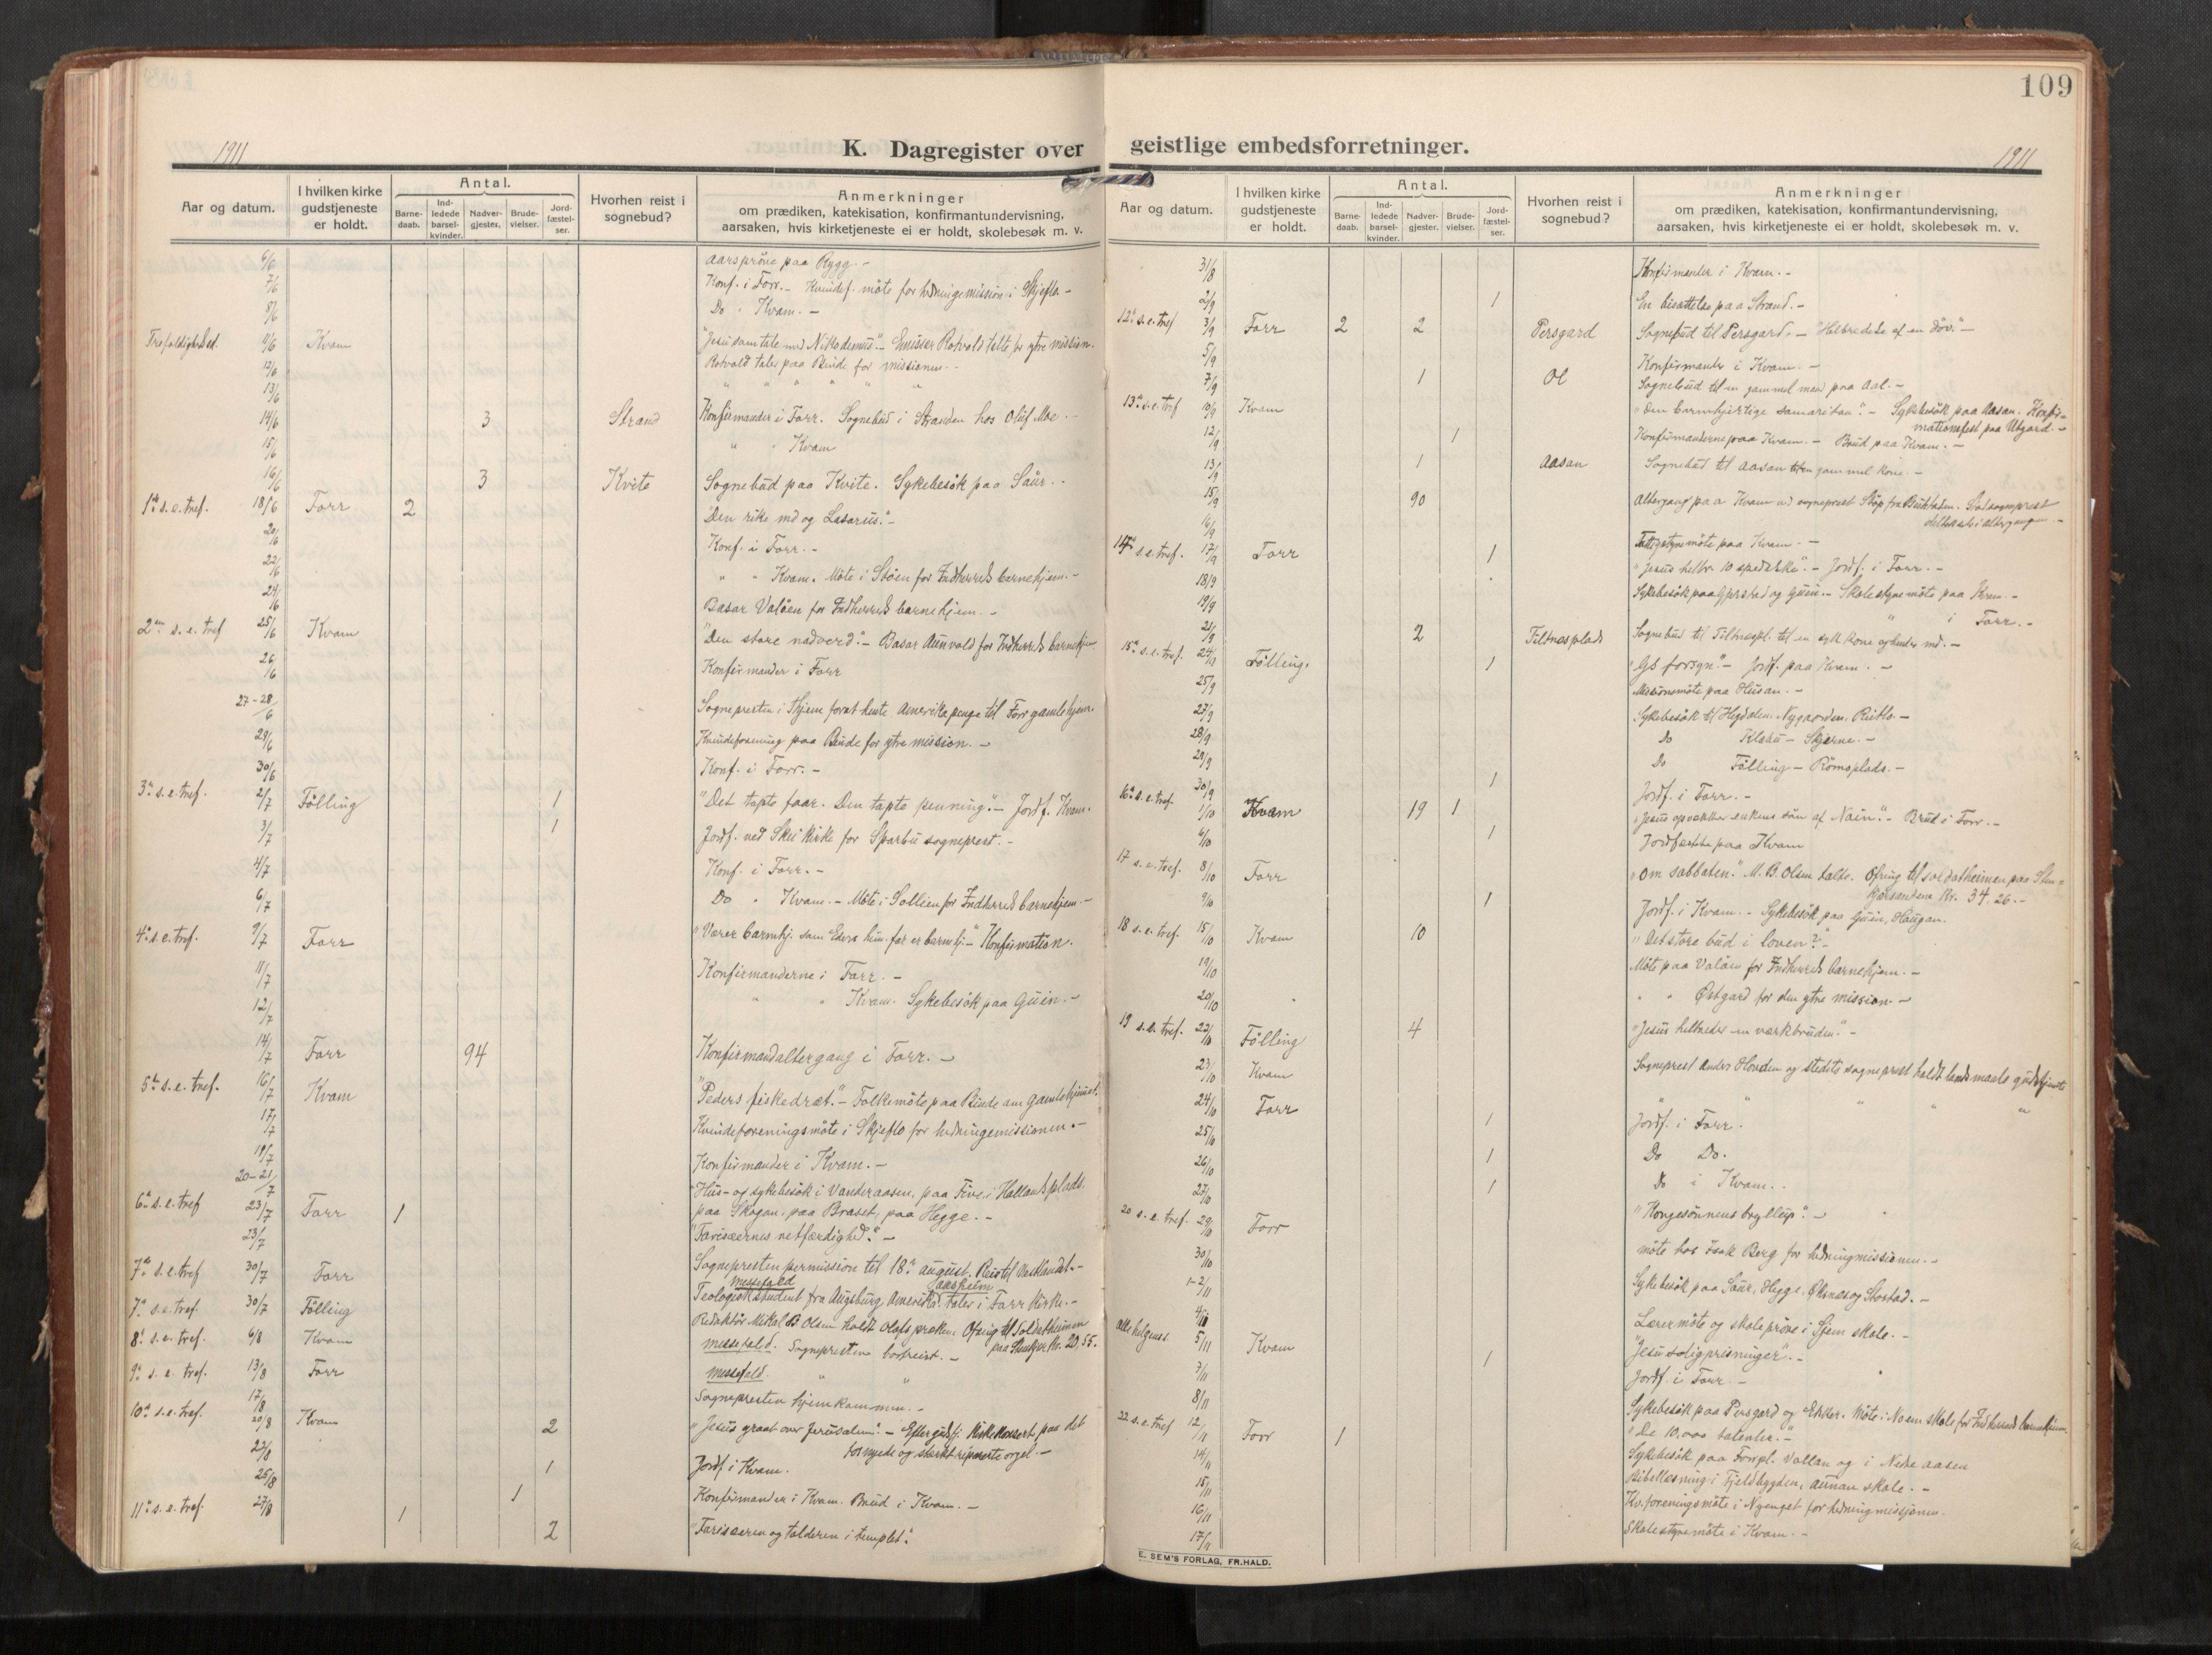 109
1911
K. Dagregister over
Aar og datum.
I hvilken kirke gudstjeneste er holdt.
Antal.
Barne-daab.
Ind-ledede barsel-kvinder.
Nadver-gjester.
Brude-vielser.
Jord-fæstel-ser.
Hvorhen reist i sognebud?
Anmerkninger
om prædiken, katekisation, konfirmantundervisning,
aarsaken, hvis kirketjeneste ei er holdt, skolebesøk m. v.
6/6 Aarsprøve paa Rygg. -
7/6 Konf. i Forr. - Kvindef. møte for hedningemission i Skjeflo. -
8/6 Do " Kvam. -
11/6 Kvam "Jesu samtale med Nikodemus". - Emissær Rotvold talte for ytre mission.
12/6 Rotvold taler paa Binde for missionen. -
13/6 " " " " " "
14/6 3 Strand Konfirmander i Forr. Sognebud i Stranden hos Oluf Moe. -
15/6 " " Kvam
16/6 3 Kvite Sognebud paa Kvite. Sykebesøk paa Saur. -
1ste s. e. tref. 18/6 Forr 2 "Den rike md og Lasarus". -
20/6 Konf. i Forr. -
22/6 " " Kvam. Møte i Støen for Indherreds barnehjem. -
24/6 Basar Valøen for Indherreds barnehjem. -
2den s. e. tref 25/6 Kvam "Den store nadverd". - Basar Aunvold for Indherreds barnehjem
26/6 Konfirmander i Forr
27-28/6 Sognepresten i Stjern forat hente Amerikapenge til Forr gamlehjem.
29/6 Kvindeforening paa Binde for ytre mission. -
30/6 Konf. i Forr. -
3de s. e. tref. 2/7 Følling 1 "Det tapte faar. Den tapte penning". - Jordf. Kvam.
3/7 1 Jordf. ved Skei kirke for Sparbu sogneprest. -
4/7 Konf. i Forr. -
6/7 Do " Kvam. - Møte i Sollien for Indherreds barnehjem. -
4de s. e. tref. 9/7 Forr "Værer barmhj. som Eders him. far er barmhj. -" Konfirmation.
11/7 Konfirmanderne i Forr. -
12/7 " " Kvam. Sykebesøk paa Guin. -
14/7 Forr 94 Konfirmandaltergang i Forr. -
5te s. e. tref. 16/7 Kvam "Peders fiskedræt". - Folkemøte paa Binde om gamlehjemmet.
17/7 Kvindeforeningsmøte i Skjeflo for hedningemissionen. -
19/7 Konfirmander i Kvam. -
20-21/7 Hus- og sykebesøk i Vanderaasen, paa Five i Hallandsplads.
paa Skogan, paa Braset, paa Hegge. -
6te s. e. tref 23/7 Forr 1 "Farisæernes retfærdighed". -
23/7 Sognepresten permission til 18de august. Reist til Vestlandet. -
7de s. e. tref 30/7 Forr Teologisk student fra Augsburg Amerika taler i Forr kirke. -
7de s. e. tref. 30/7 Følling messefald Redaktør Mikal B Olsen holdt Olafspræken. Ofring til Soldatheimen
8de s. e. tref. 6/8 Kvam messefald. Sognepresten bortreist. - paa Stenkjer Kr. 20,55.
9de s. e. tref. 13/8 Forr messefald. " "
17/8 Sognepresten hjemkommen. -
10de s. e. tref. 20/8 Kvam 2 "Jesus graat over Jerusalem". - Efter gudstj. Kirkekonsert paa det
fornyede og sterkt reparerte orgel. -
22/8 1 Jordf. i Kvam.
25/8 1 Konfirmander i Kvam. Brud i Kvam. -
11te s. e. tref. 27/8 1 2 "Farisæeren og tolderen i templet".
geistlige embedsforretninger.
1911
Aar og datum.
I hvilken kirke gudstjeneste er holdt.
Antal.
Barne-daab.
Ind-ledede barsel-kvinder.
Nadver-gjester.
Brude-vielser.
Jord-fæstel-ser.
Hvorhen reist i sognebud?
Anmerkninger
om prædiken, katekisation, konfirmantundervisning,
aarsaken, hvis kirketjeneste ei er holdt, skolebesøk m. v.
31/8 Konfirmanter i Kvam. -
2/9 1 En bisættelse paa Strand. -
12te s. e. tref 3/9 Forr 2 2 Persgard Sognebud til Persgard. - "Helbredelse af en døv". -
5/9 Konfirmander i Kvam. -
7/9 1 Ol Sognebud til en gammel mand paa Aal. -
13de s. e. tref 10/9 Kvam "Den barmhjertige samaritan". - Sykebesøk paa Aasan. Konfir-
mationsfest paa Utgard. -
12/9 1 Konfirmanderne paa Kvam. - Brud paa Kvam. -
13/9 1 Aasan Sognebud til Aasan til en gammel kone. -
15/9 90 Altergang paa Kvam ved sogneprest Støp fra Beitstaden. Stedets sogneprest
deltok i altergangen. -
16/9 Fattigstyremøte paa Kvam. -
14de s. e. tref. 17/9 Forr 1 "Jesus helbr. 10 spedalske". - Jordf. i Forr. -
18/9 Sykebesøk paa Gjerstad og Guin. - Skolestyremøte paa Kvam. -
19/9 " i Forr. -
21/9 2 Tiltnesplads Sognebud til Tiltnespl. til en syk kone og hendes md. -
15de s. e. tref. 24/9 Følling. 1 "Gs forsyn". - Jordf. paa Kvam. -
25/9 Missionsmøte paa Husan. -
27/9 Sykebesøk til Hegdalen, Nygaarden, Reitlo. -
28/9 Do Klæbu - Skjerve. -
29/9 Do Følling - Rømoplads. -
30/9 1 Jordf. i Forr. -
16de s. e. tref. 1/10 Kvam 19 1 "Jesus opvækker enkens søn af Nain". - Brud i Forr. -
6/10 1 Jordfæstelse paa Kvam
17 s. e. tref. 8/10 Forr "Om sabbaten". M. B. Olsen talte. Ofring til soldatheimen paa Sten-
kjærsandene Kr. 34.26. -
9/10 1 Jordf. i Kvam. - Sykebesøk paa Guin, Haugan.
18 s. e. tref. 15/10 Kvam 10 "Det store bud i loven?" -
19/10 Møte paa Valøen for Indherreds barnehjem. -
20/10 " " Østgard for den ytre mission. -
19 s. e. tref. 22/10 Følling 4 "Jesus helbreder en værkbruden". -
23/10 Kvam Sogneprest Anders Hovden og stedets sogneprest holdt landsmaals gudstjeneste
24/10 Forr " " " " "
25/10 1 Jordf. i Forr.
26/10 1 Do Do.
27/10 1 Do i Kvam. -
20 s. e. tref. 29/10 Forr "Kongesønnens bryllup". -
30/10 Møte hos Isak Berg for hedningmissionen. -
1-2/11 Sykebesøk paa Saur, Hegge, Øksnes og Stostad. -
4/11 Læremøte og skoleprøve i Gjem skole. -
Allehelgens 5/11 Kvam "Jesu saligprisninger". -
7/11 1 Jordf. i Forr. -
8/11 Sykebesøk paa Persgard og Ekker. Møte i Noem skole for Indherreds barnehjem.
22 s. e. tref 12/11 Forr 1 "De 10.000 talenter." -
14/11 Sykebesøk paa Forrpl. Vollan og i Nedre Aasen
15/11 Bibellæsning i Fjeldbygden, Aunan skole. -
16/11 Kv.foreningsmøte i Nyenget for hedningmissjonen.
17/11 Skolestyremøte i Kvam. -
E. SEM'S FORLAG, FR.HALD.